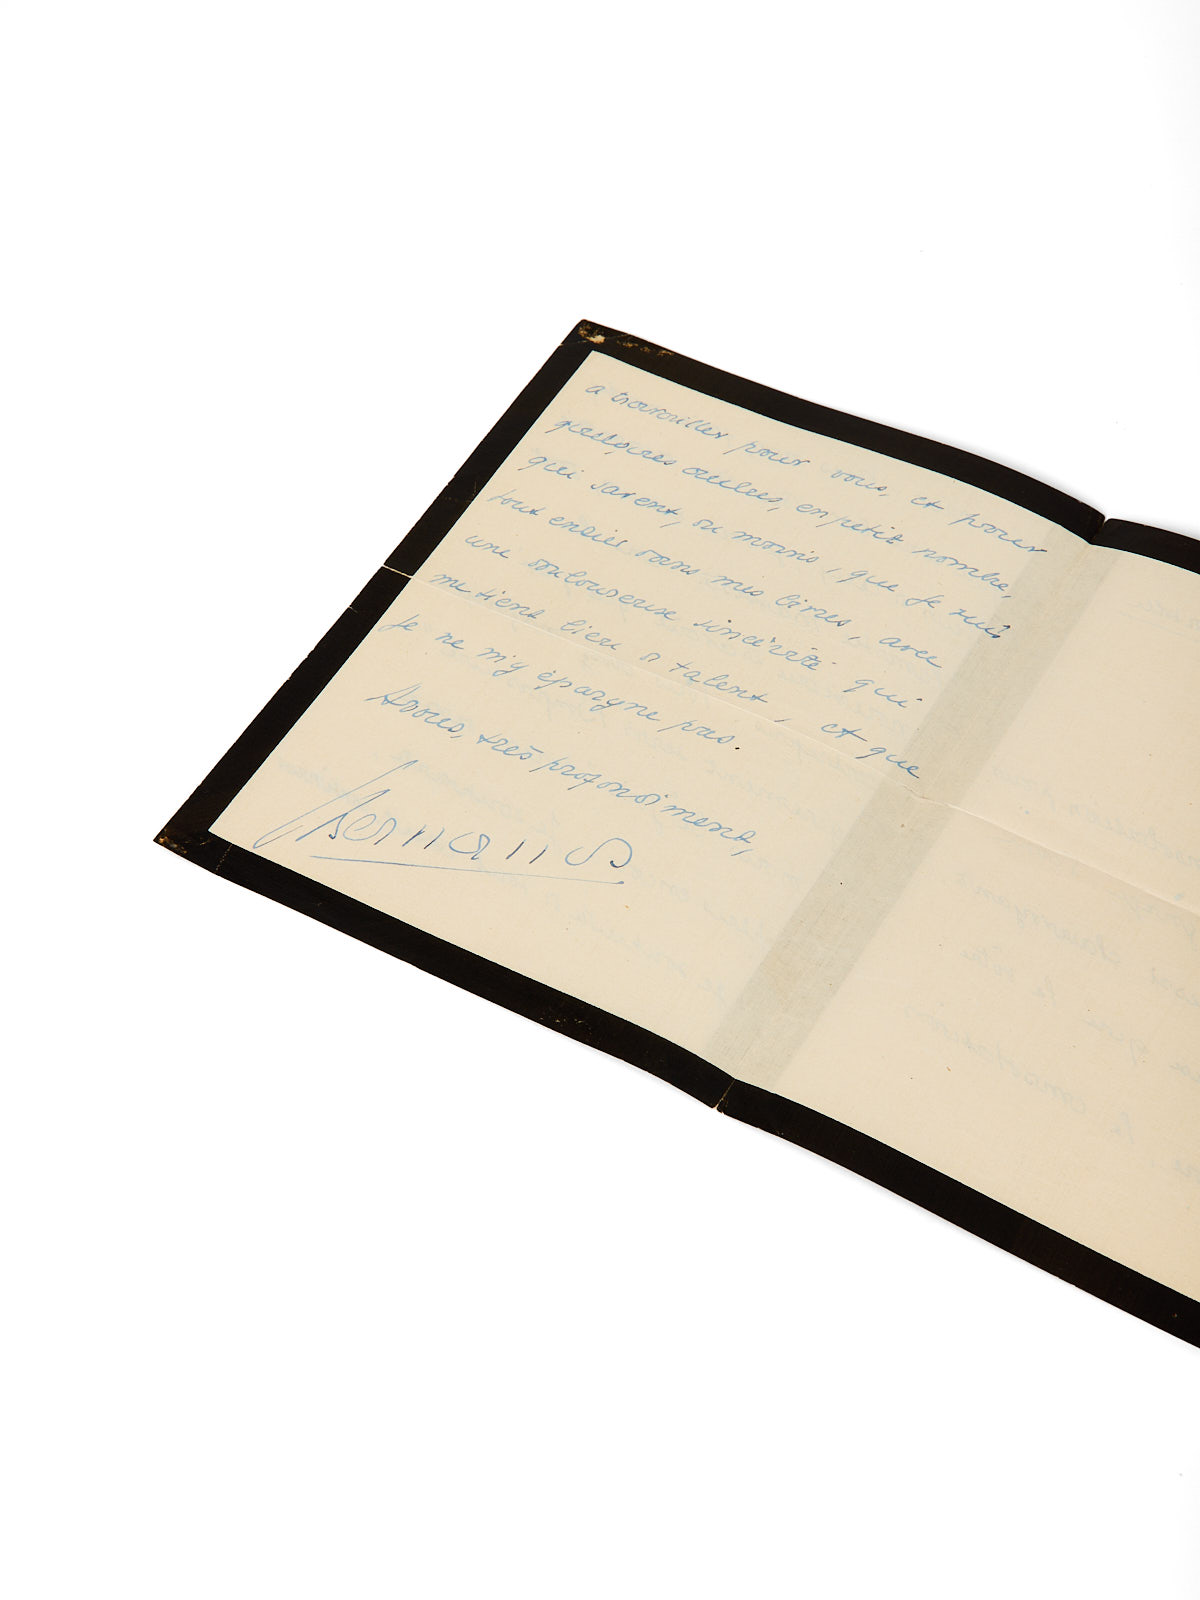 à travailler pour vous, et pour
quelques autres, en petit nombre,
qui savent, du moins, que je suis
tout entier dans mes livres, avec
une douloureuse sincérité qui
me tient lieu de talent, et que
je ne m'y épargne pas.
A vous, très profondément,
Bernanos